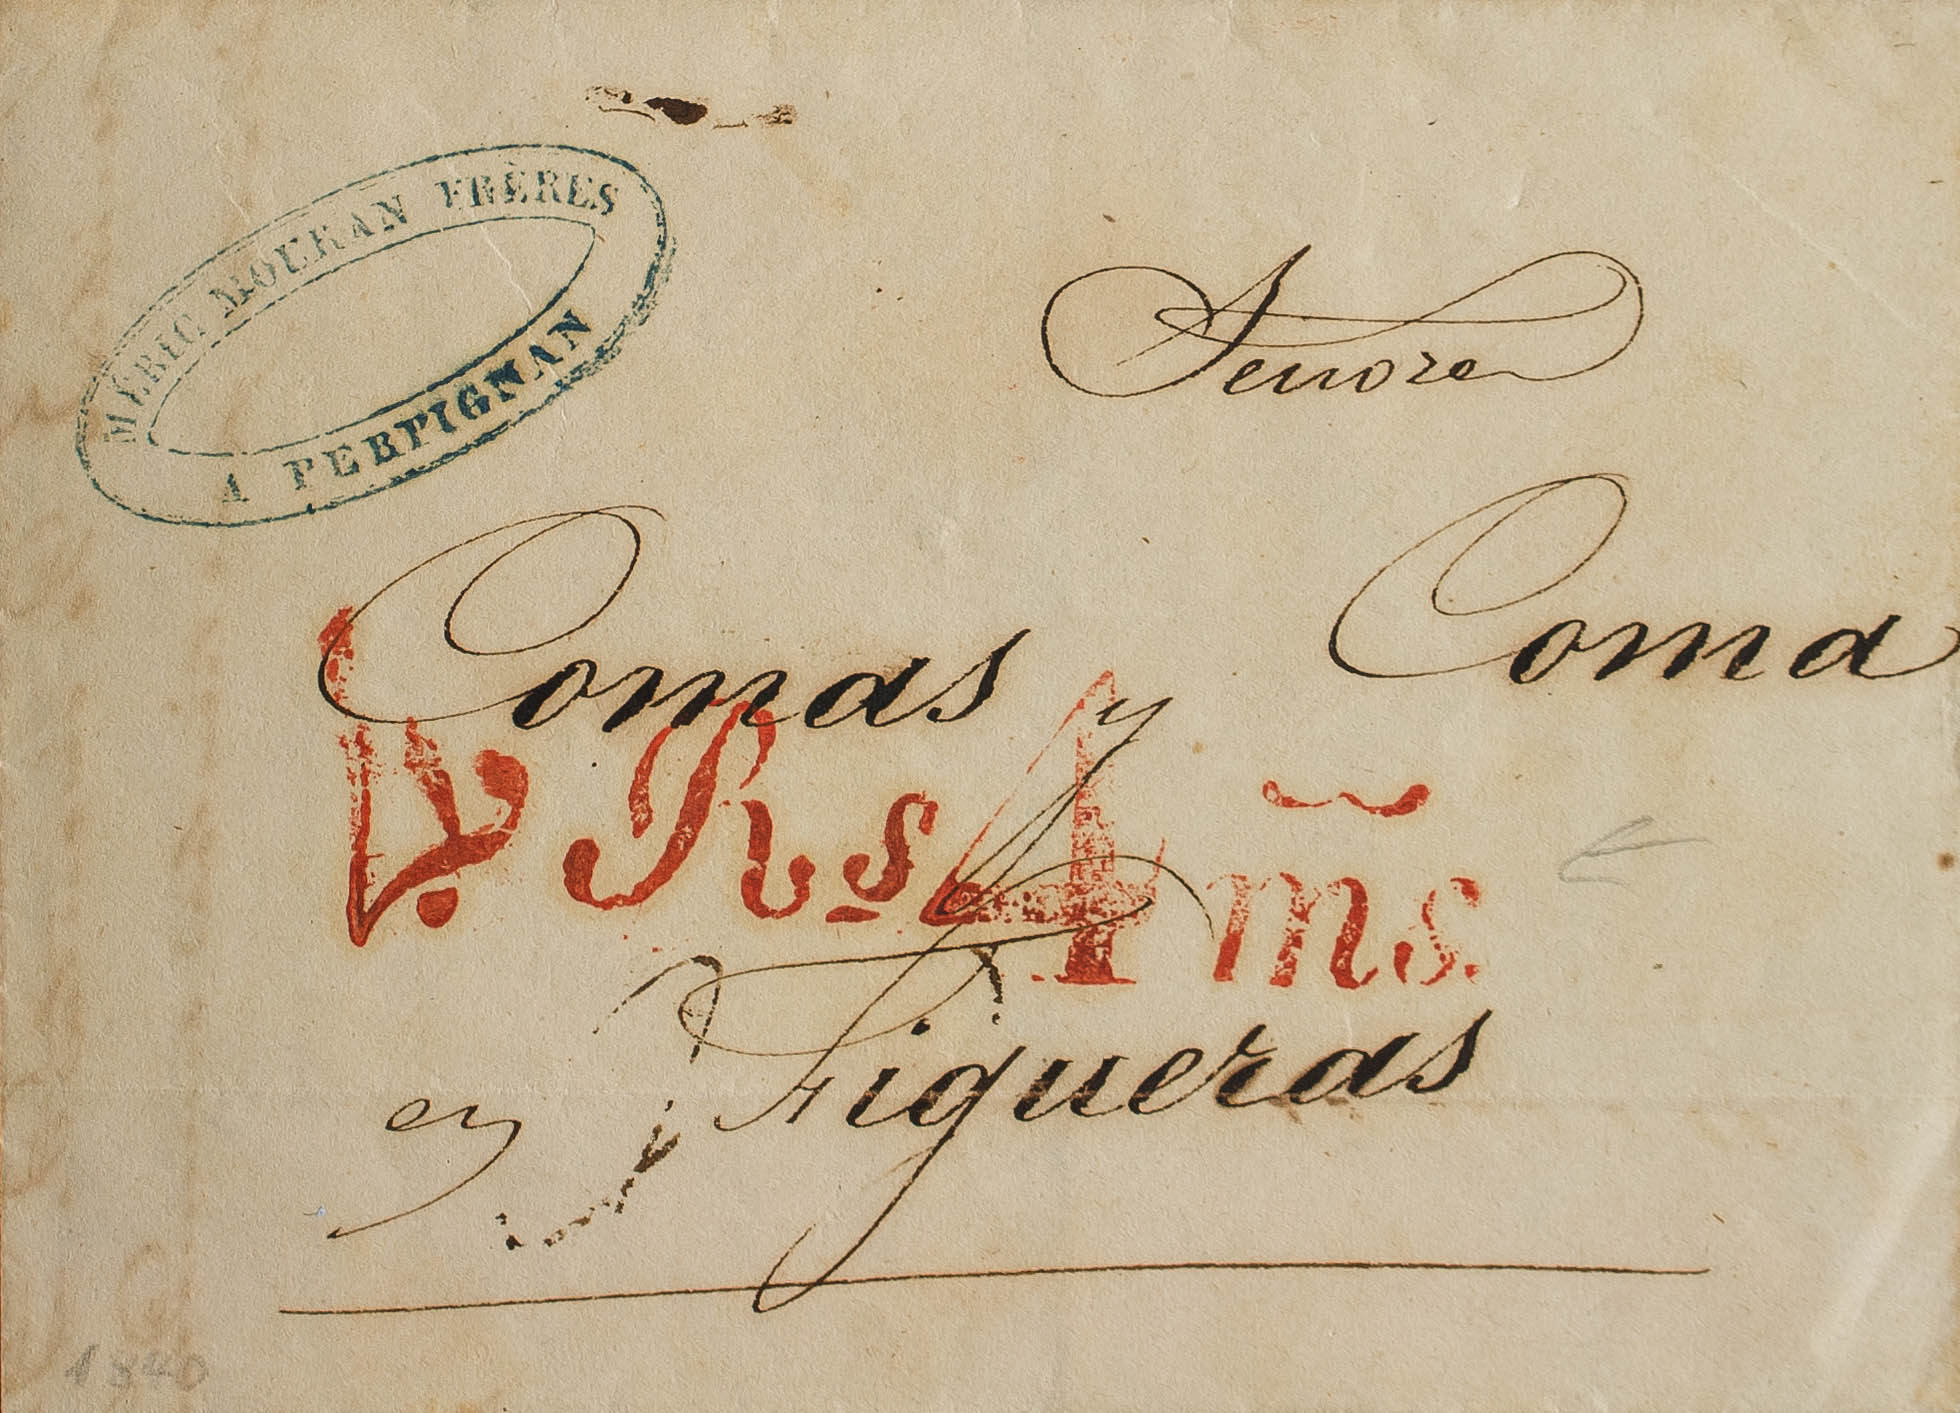 MÉRIC MOURAN FRÈRES
A PERPIGNAN
Senores
Comas y Coma
Rs 4 m̃s.
en Figueras
1840